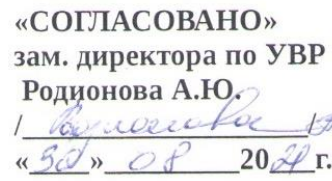 «СОГЛАСОВАНО»
зам. директора по УВР
Родионова А.Ю.
/ Родионова /
«30» 08 20 г.